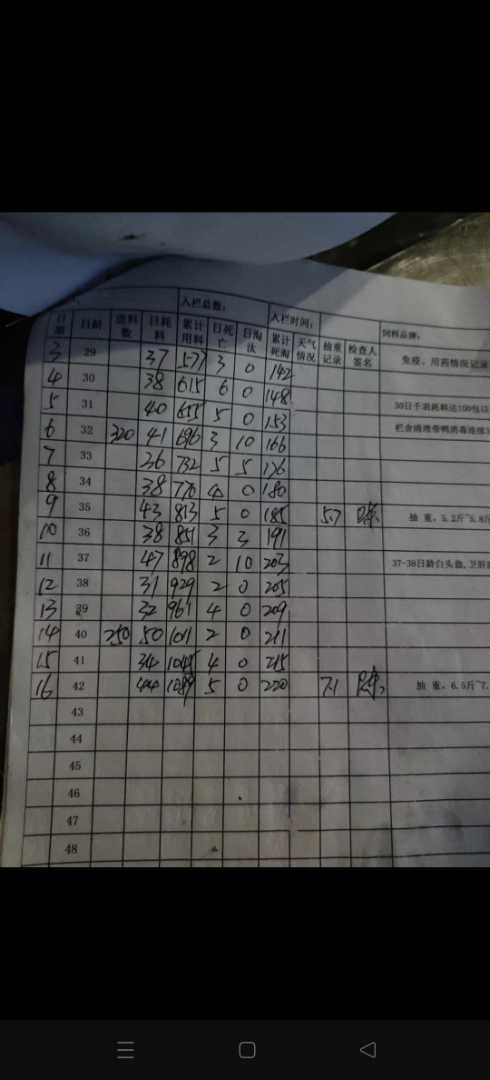 入栏总数： 入栏时间： 饲料品牌：
日期 日龄 进料数 日耗料 累计用料 日死亡 日淘汰 累计死淘 天气情况 抽重记录 检查人签名 免疫、用药情况记录
3 29 37 577 3 0 142
4 30 38 615 6 0 148
5 31 40 655 5 0 153 30日千羽耗料达100包以
6 32 320 41 696 3 10 166
7 33 36 732 5 5 176
8 34 38 770 4 0 180
9 35 43 813 5 0 185 5.7 抽重，5.2斤~5.8斤
10 36 38 851 3 3 191
11 37 47 898 2 10 203
12 38 31 929 2 0 205
13 39 32 961 4 0 209
14 40 250 50 1011 2 0 211
15 41 34 1045 4 0 215
16 42 44 1089 5 0 220 7.1 抽重，6.5斤~7.
43
44
45
46
47
48